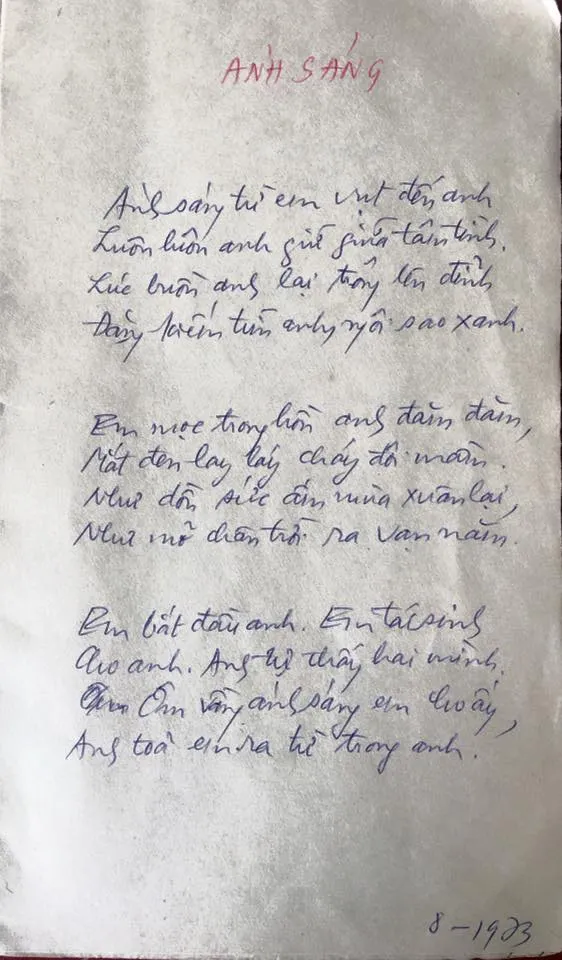 ÁNH SÁNG
Ánh sáng từ em vụt đến anh
Luôn luôn anh giữ giữa tâm tình.
Lúc buồn anh lại trông lên đỉnh
Đăng kiếm tìm anh, ngôi sao xanh.
Em mọc trong hồn anh đăm đăm,
Mắt đen lay láy cháy đôi mầm.
Như dồn sức ấm mùa xuân lại,
Như mở chân trời ra vạn năm.
Em bắt đầu anh. Em tái sinh
Cho anh. Anh tự thấy hai mình.
Ôm vầng ánh sáng em cho ấy,
Anh toả em ra từ trong anh.
8-1973